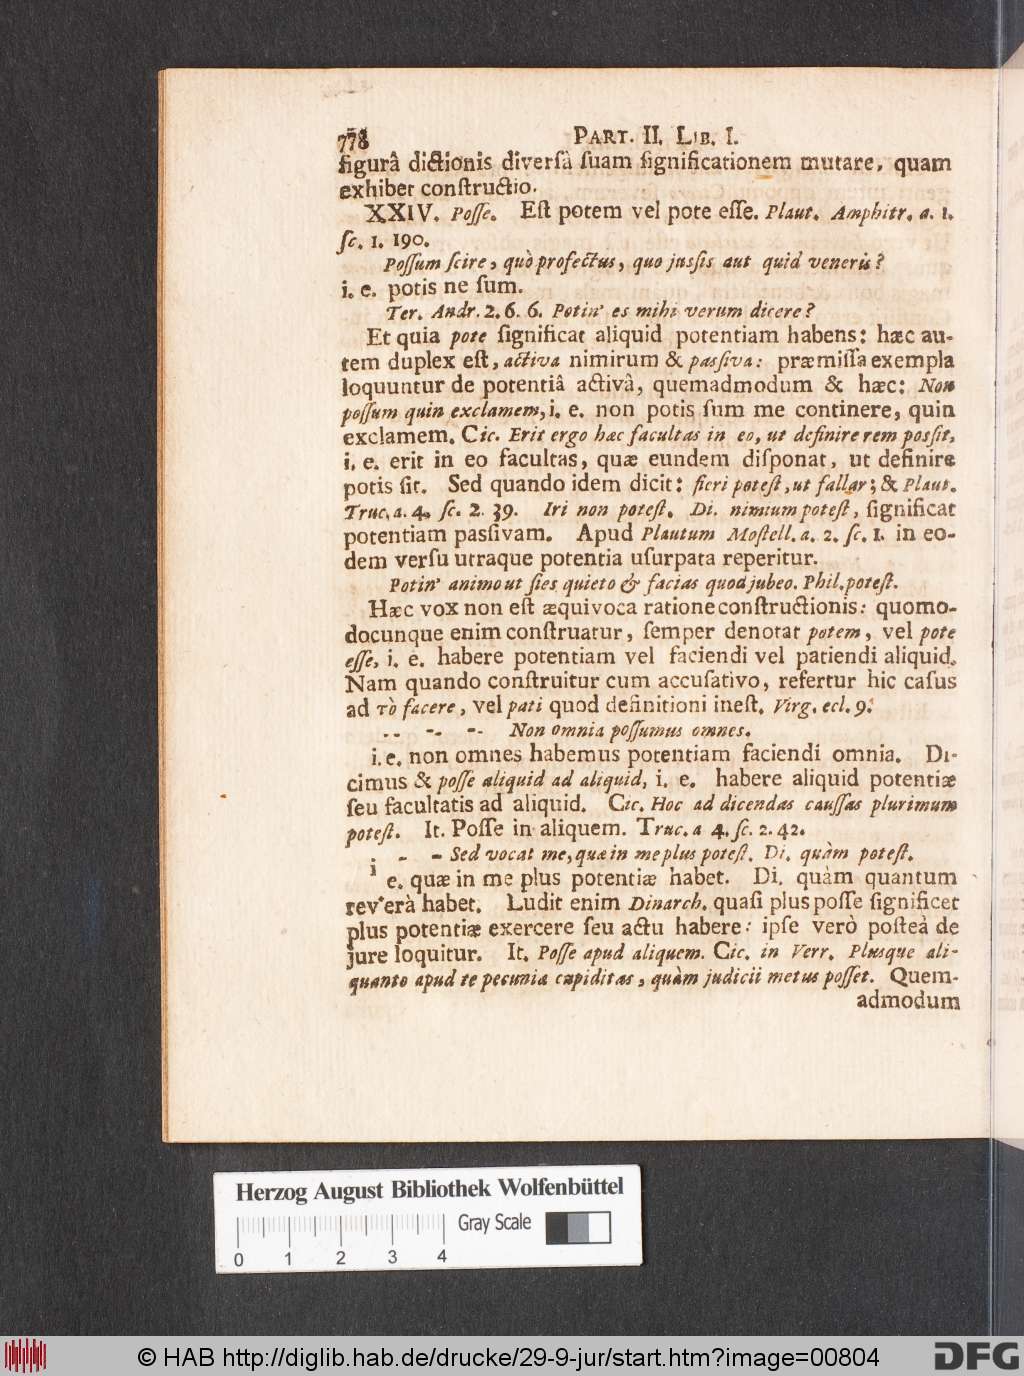 778 PART. II. LIB. I.
figurâ dictionis diversâ suam significationem mutare, quam
exhibet constructio.
XXIV. Posse. Est potem vel pote esse. Plaut. Amphitr. a. 1.
sc. 1. 190.
Possum scire, quò profectus, quo jussis aut quid veneris?
i. e. potis ne sum.
Ter. Andr. 2. 6. 6. Potin' es mihi verum dicere?
Et quia pote significat aliquid potentiam habens: hæc au-
tem duplex est, activa nimirum & passiva: præmissa exempla
loquuntur de potentiâ activâ, quemadmodum & hæc: Non
possum quin exclamem, i. e. non potis sum me continere, quin
exclamem. Cic. Erit ergo hæc facultas in eo, ut definire rem possit,
i. e. erit in eo facultas, quæ eundem disponat, ut definire
potis sit. Sed quando idem dicit: fieri potest, ut fallar; & Plaut.
Truc. a. 4. sc. 2. 39. Iri non potest. Di. nimium potest, significat
potentiam passivam. Apud Plautum Mostell. a. 2. sc. 1. in eo-
dem versu utraque potentia usurpata reperitur.
Potin' animo ut sies quieto & facias quod jubeo. Phil. potest.
Hæc vox non est æquivoca ratione constructionis: quomo-
docunque enim construatur, semper denotat potem, vel pote
esse, i. e. habere potentiam vel faciendi vel patiendi aliquid.
Nam quando construitur cum accusativo, refertur hic casus
ad τὸ facere, vel pati quod definitioni inest. Virg. ecl. 9.
-- -- -- Non omnia possumus omnes.
i. e. non omnes habemus potentiam faciendi omnia. Di-
cimus & posse aliquid ad aliquid, i. e. habere aliquid potentiæ
seu facultatis ad aliquid. Cic. Hoc ad dicendas caussas plurimum
potest. It. Posse in aliquem. Truc. a 4. sc. 2. 42.
. - - Sed vocat me, quæ in me plus potest. Di. quàm potest.
i e. quæ in me plus potentiæ habet. Di. quàm quantum
rev'erà habet. Ludit enim Dinarch. quasi plus posse significet
plus potentiæ exercere seu actu habere: ipse verò posteà de
jure loquitur. It. Posse apud aliquem. Cic. in Verr. Plusque ali-
quanto apud te pecuniæ cupiditas, quàm judicii metus posset. Quem-
admodum
Herzog August Bibliothek Wolfenbüttel
Gray Scale
0 1 2 3 4
© HAB http://diglib.hab.de/drucke/29-9-jur/start.htm?image=00804
DFG